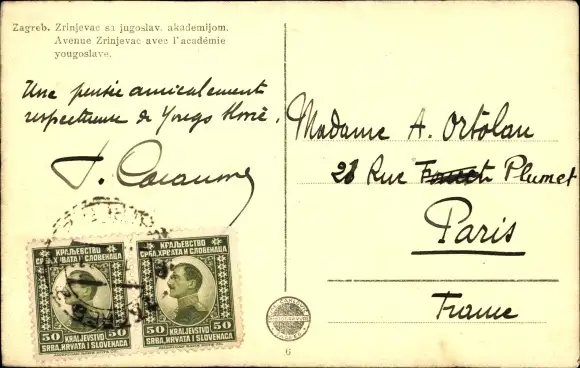 Zagreb. Zrinjevac sa jugoslav. akademijom.
Avenue Zrinjevac avec l'académie
yougoslave.
Une pensée amicalement
respectueuse de Yougo
Madame A. Ortolan
28 Rue Plumet
Paris
France
КРАЉЕВСТВО
СРБА, ХРВАТА И СЛОВЕНАЦА
50 KRALJEVSTVO 50
SRBA, HRVATA I SLOVENACA
КРАЉЕВСТВО
СРБА, ХРВАТА И СЛОВЕНАЦА
50 KRALJEVSTVO 50
SRBA, HRVATA I SLOVENACA
6